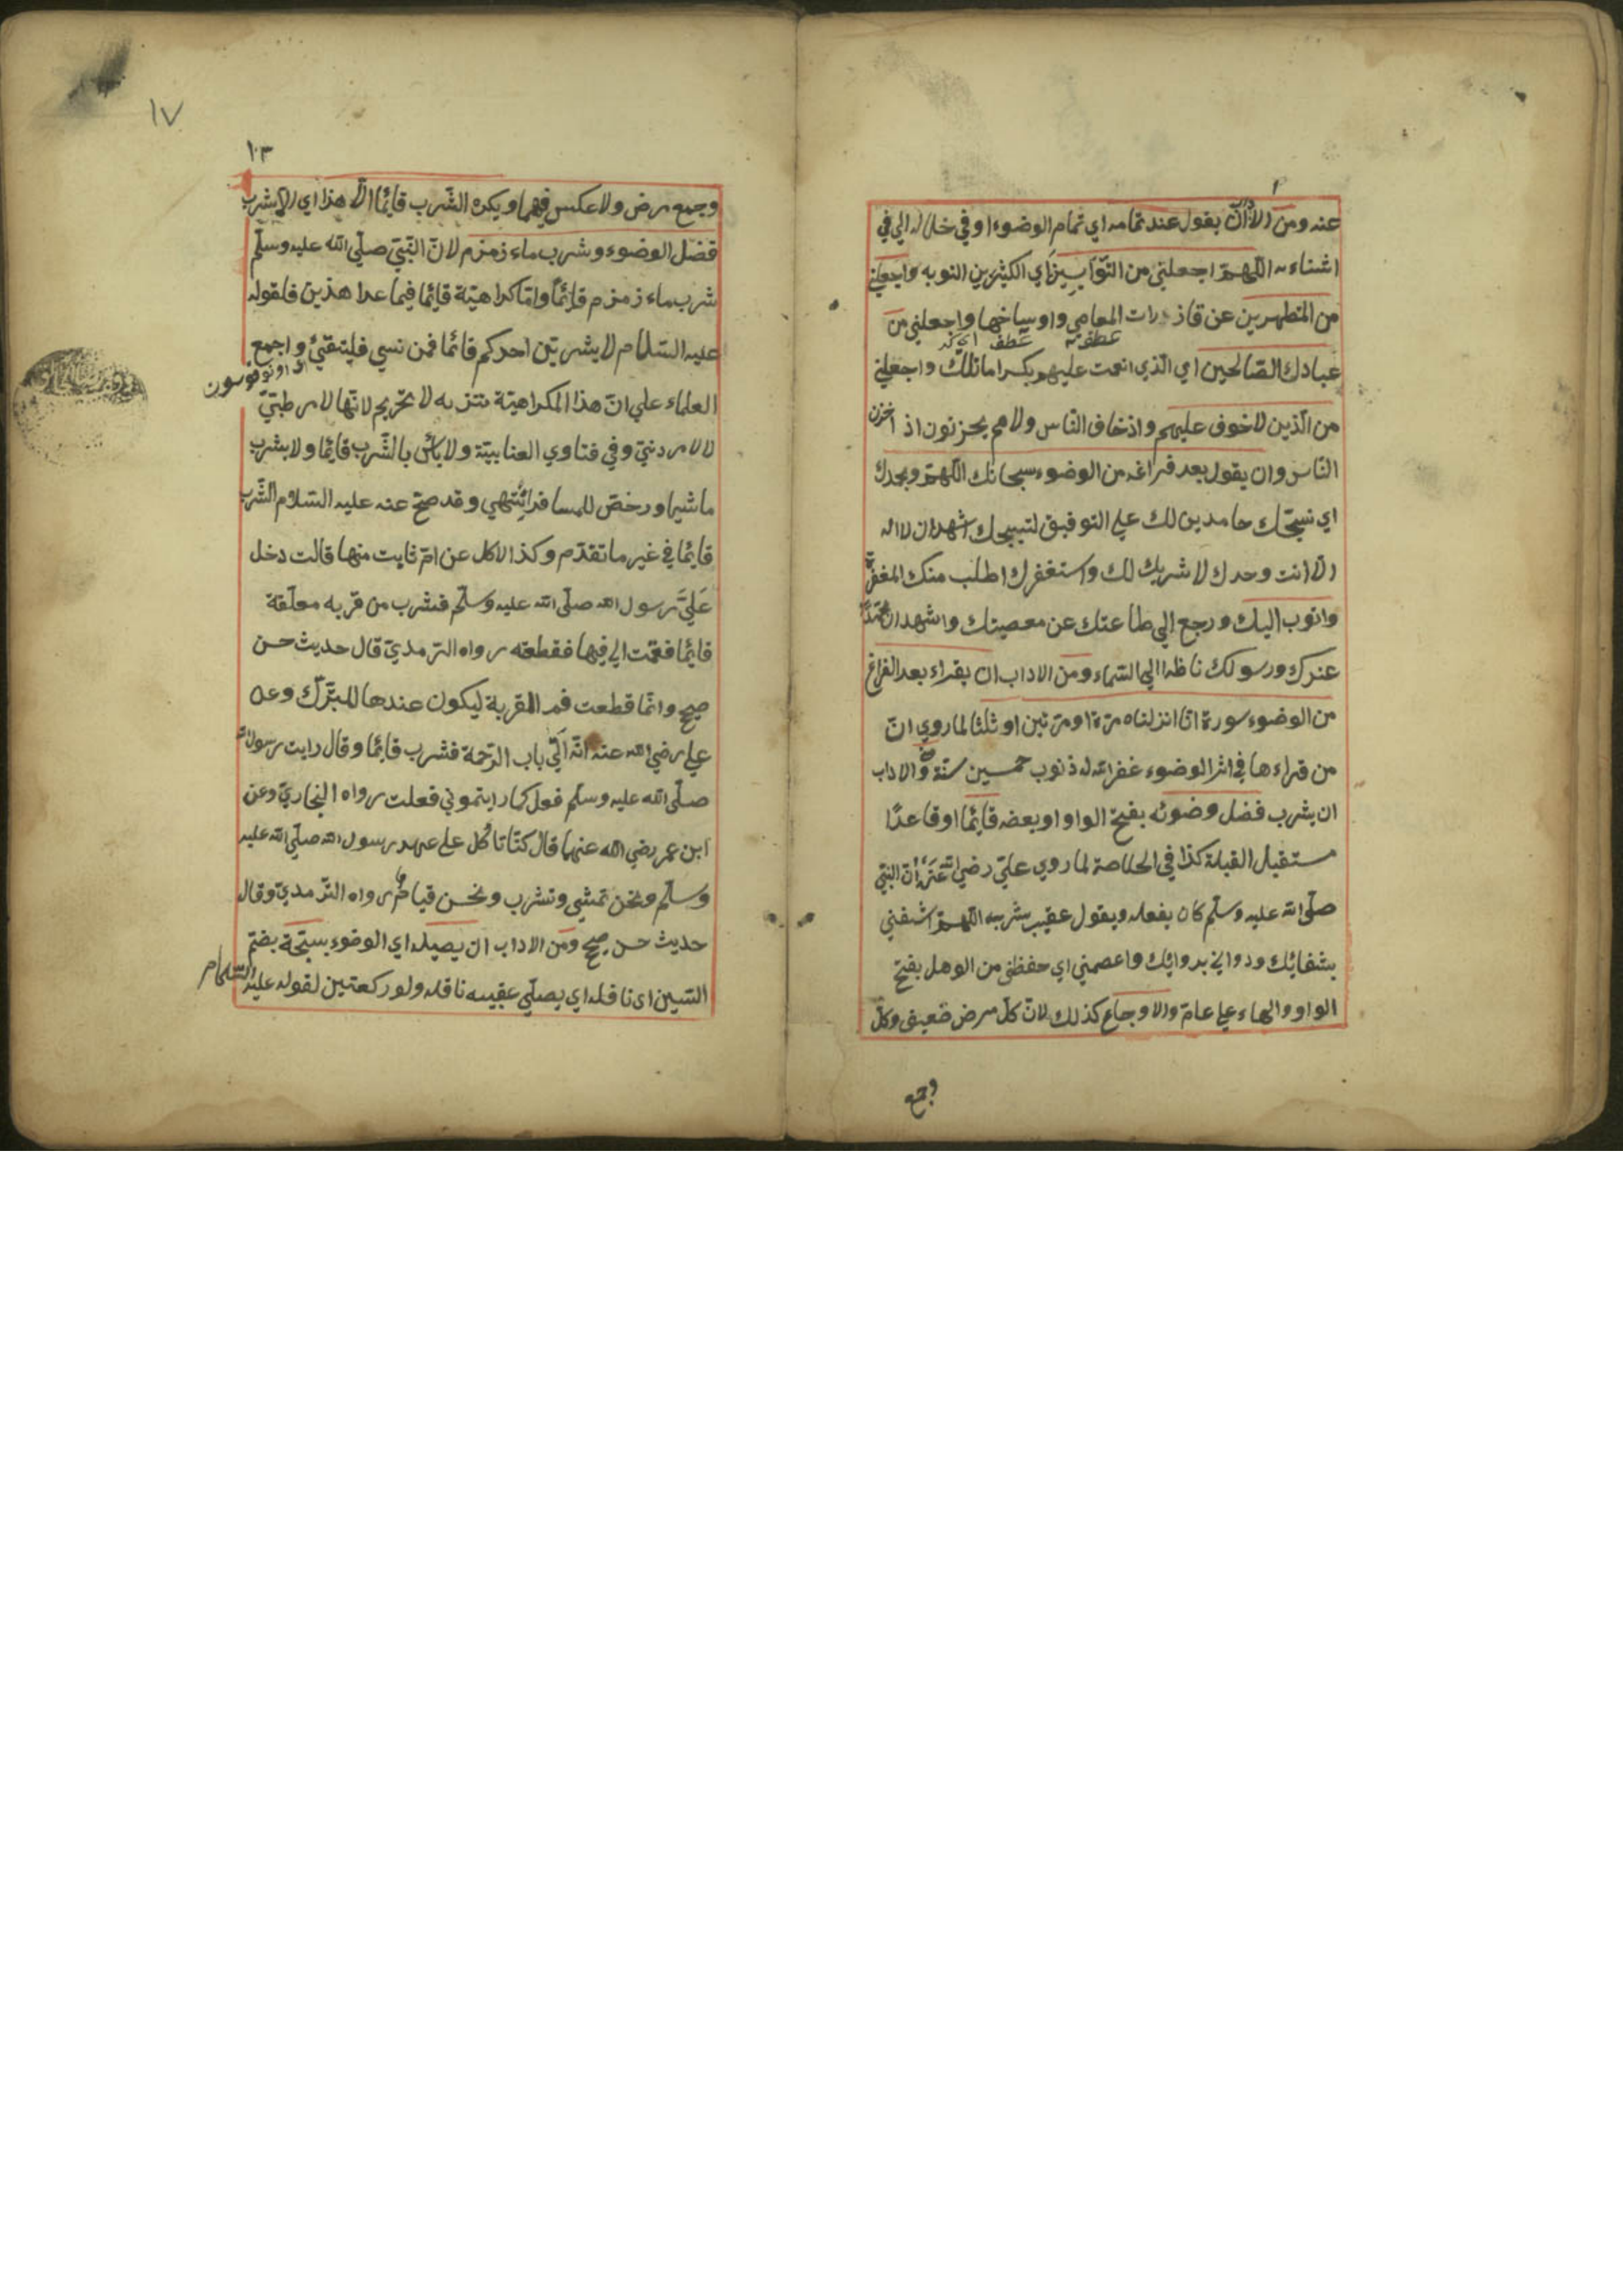 عنه ومن الاداب ان يقول عند تمامه اي تمام الوضوء او في خلاله الي في
اثنائه اللهمّ اجعلني من التوّابين اي الكثيرين التوبه واجعلني
من المتطهرين عن قاذورات المعاصي واوساخها واجعلني من
عبادك الصّالحين اي الّذي انعمت عليهم بكراماتك واجعلني
من الّذين لا خوف عليهم واذ خاف النّاس ولا هم يحزنون اذ احزن
النّاس وان يقول بعد فراغه من الوضوء سبحانك اللهمّ وبحمدك
اي نسبّحك حامدين لك علي التوفيق لتسبيحك اشهد ان لا اله
الّا انت وحدك لا شريك لك واستغفرك اطلب منك المغفرة
واتوب اليك ورجع إلي طاعتك عن معصيتك واشهد ان محمّدًا
عبدك ورسولك ناظرا الي السّماء ومن الاداب ان يقراء بعد الفراغ
من الوضوء سورة انّا انزلناه مرّة او مرّتين او ثلثا لما روي انّ
من قراءها في اثر الوضوء غفر الله له ذنوب خمسين سنة ومن الاداب
ان يشرب فضل وضوئه بفتح الواو او بعضه قائما او قاعدًا
مستقبل القبلة كذا في الخلاصة لما روي عليّ رضي الله عنه انّ النبيّ
صلّي الله عليه وسلّم كان يفعله ويقول عقيب شربه اللهمّ اشفني
بشفائك وداوني بدوائك واعصمني اي حفظني من الوهل بفتح
الواو والهاء علي عامّ والاوجاع كذلك لانّ كلّ مرض ضعيف وكلّ
وجمع
١٧
١٠٣
وجمع مرض ولا عكس فيهما ويكره الشّرب قائما الّا هذا اي الّا شرب
فضل الوضوء وشرب ماء زمزم لانّ النّبيّ صلّي الله عليه وسلّم
شرب ماء زمزم قائماً وامّا كراهيّة قائما فيما عدا هذين فلقوله
عليه السّلام لا يشربنّ احدكم قائما فمن نسي فليتقيّئ واجمع
العلماء علي انّ هذا الكراهيّة تنزيه لا تحريم لانّها لامر طبّيّ
لا لامر دنيّ وفي فتاوي العتابيّة ولا بأس بالشّرب قائما ولا يشرب
ماشيا ورخصّ للمسافر انتهي وقد صحّ عنه عليه السّلام الشّرب
قائما في غير ما تقدّم وكذا الاكل عن امّ ثابت منها قالت دخل
عَلَيَّ رسول الله صلّي الله عليه وسلّم فشرب من قربه معلّقة
قائما فقمت الي فيها فقطعته رواه التّرمديّ قال حديث حسن
صحيح وانّما قطعت فم القربة ليكون عندها للتّبرّك وعن
علي رضي الله عنه انّه اَتَي باب الرّحمة فشرب قائما وقال رايت رسول الله
صلّي الله عليه وسلّم فعل كما رايتموني فعلت رواه البخاريّ وعن
ابن عمر رضي الله عنهما قال كنّا ناكل علي عهد رسول الله صلّي الله عليه
وسلّم ونحن نمشي ونشرب ونحن قيام رواه التّرمديّ وقال
حديث حسن صحيح ومن الاداب ان يصيله اي الوضوء بسبحة بضمّ
السّين اي نافله اي يصلّي عقيبه نافله ولو ركعتين لقوله عليه السّلام